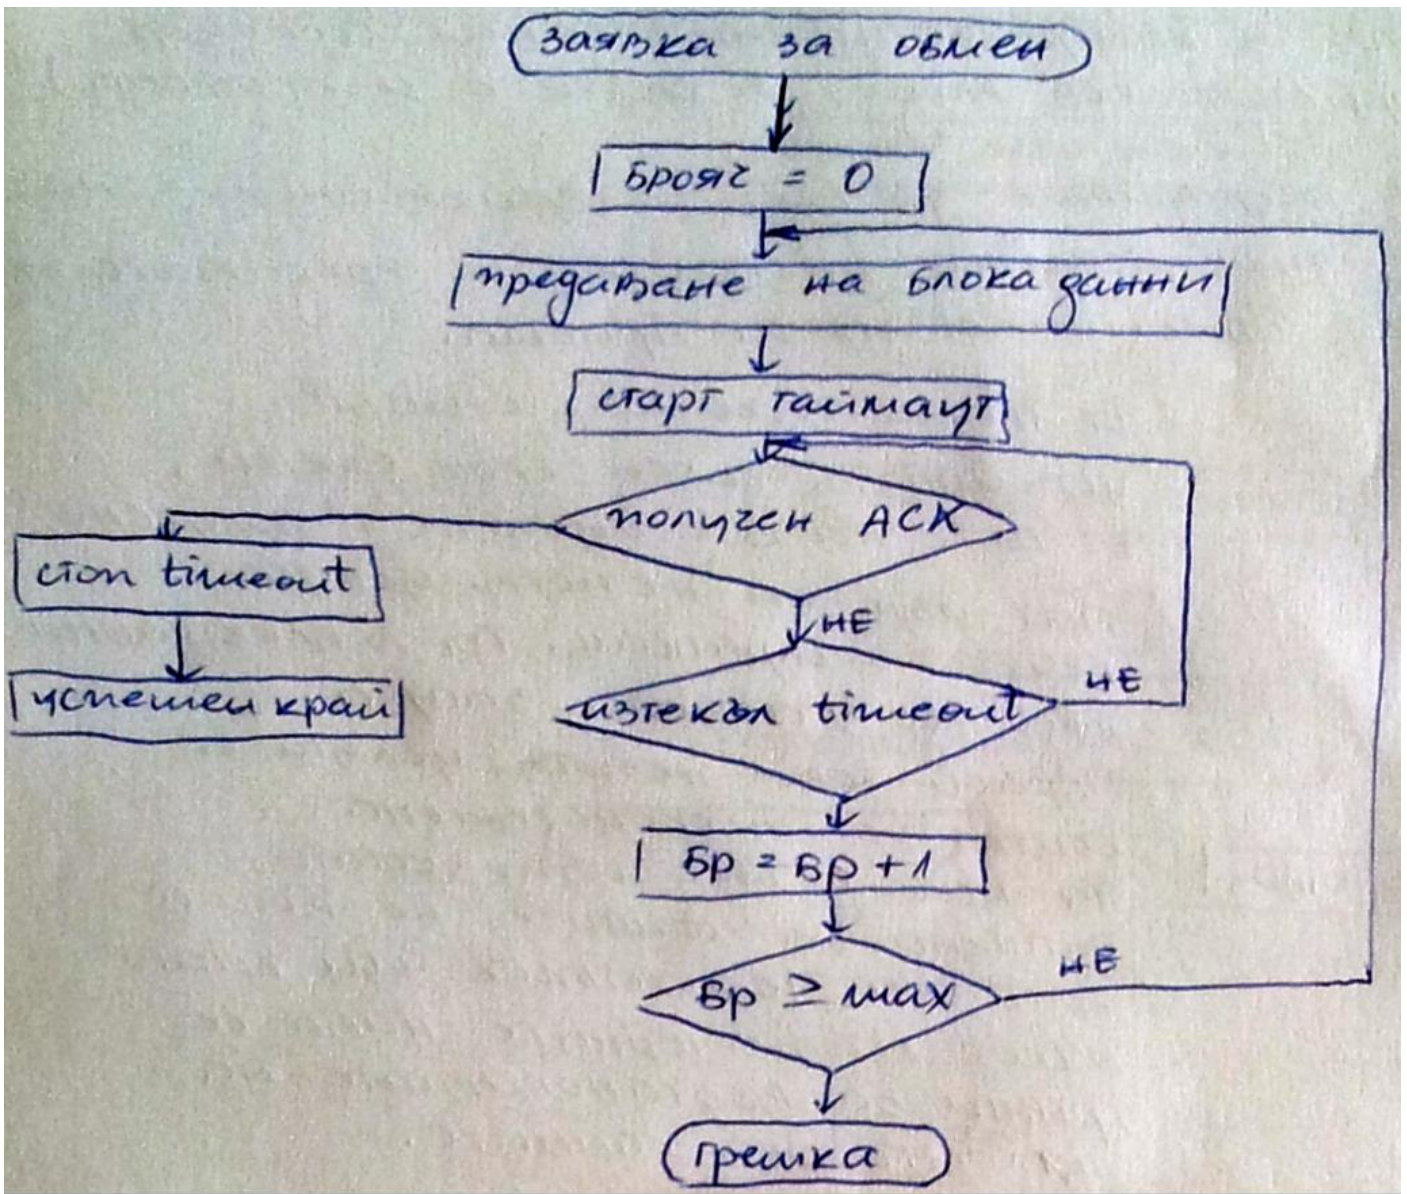 заявка за обмен
Брояч = 0
предаване на блока данни
старт таймаут
получен АСК
НЕ
стоп timeout
успешен край
изтекъл timeout
НЕ
Бр = Бр + 1
Бр ≥ max
НЕ
грешка